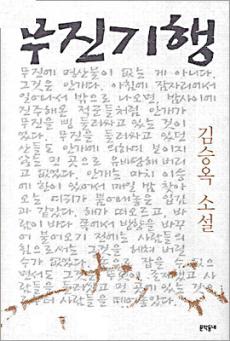 무진기행
무진에 명산물이 없는 게 아니다.
그것은 안개다. 아침에 잠자리에서
일어나서 밖으로 나오면, 밤사이에
진주해온 적군들처럼 안개가
무진을 삥 둘러싸고 있는 것이
었다. 무진을 둘러싸고 있던
산들도 안개에 의하여 보이지
않는 먼 곳으로 유배당해버리
고 없었다. 안개는 마치 이승
에 한이 있어서 매일 밤 찾아
오는 여귀가 뿜어내놓은 입김
과 같았다. 해가 떠오르고, 바
람이 바다 쪽에서 방향을 바꾸
어 불어오기 전에는 사람들의
힘으로써는 그것을 헤쳐 버릴
수가 없었다. 잡을 수 없으
면서도 그것은
김승옥 소설
문학동네